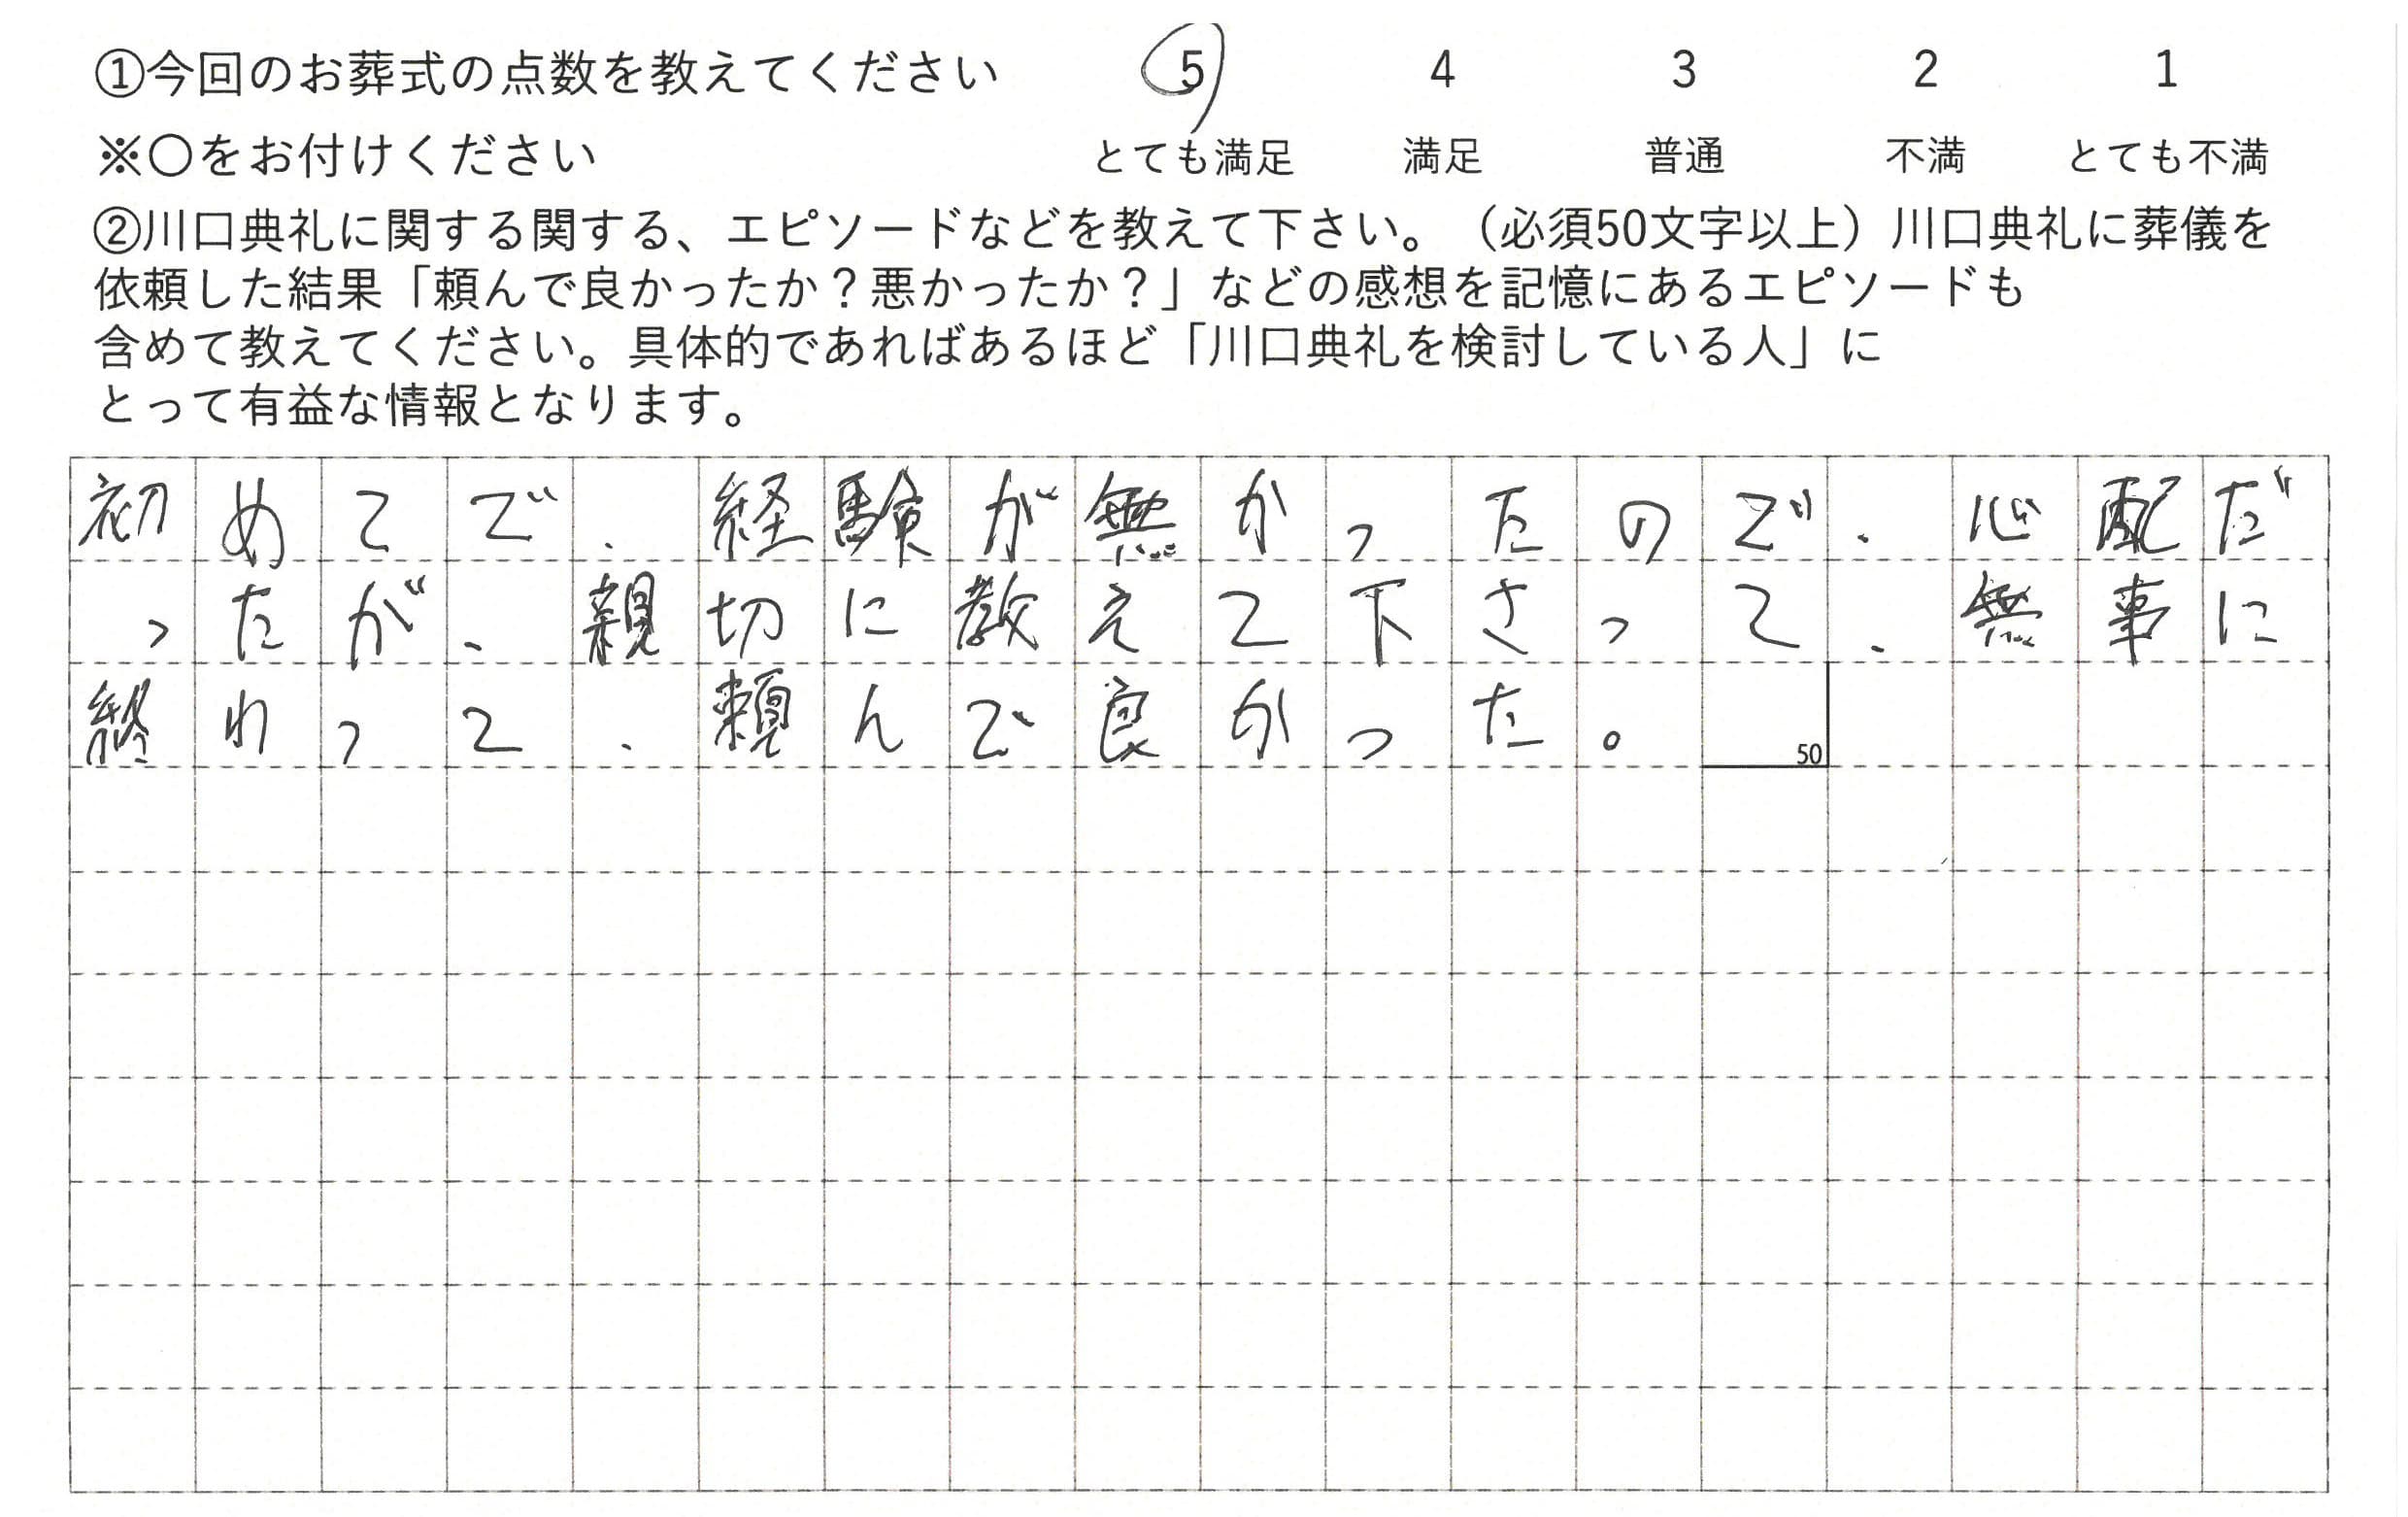 ①今回のお葬式の点数を教えてください 5 4 3 2 1
※〇をお付けください とても満足 満足 普通 不満 とても不満
②川口典礼に関する関する、エピソードなどを教えて下さい。（必須50文字以上）川口典礼に葬儀を
依頼した結果「頼んで良かったか？悪かったか？」などの感想を記憶にあるエピソードも
含めて教えてください。具体的であればあるほど「川口典礼を検討している人」に
とって有益な情報となります。
初めてで、経験が無かったので、心配だ
ったが、親切に教えて下さって、無事に
終わって、頼んで良かった。
50